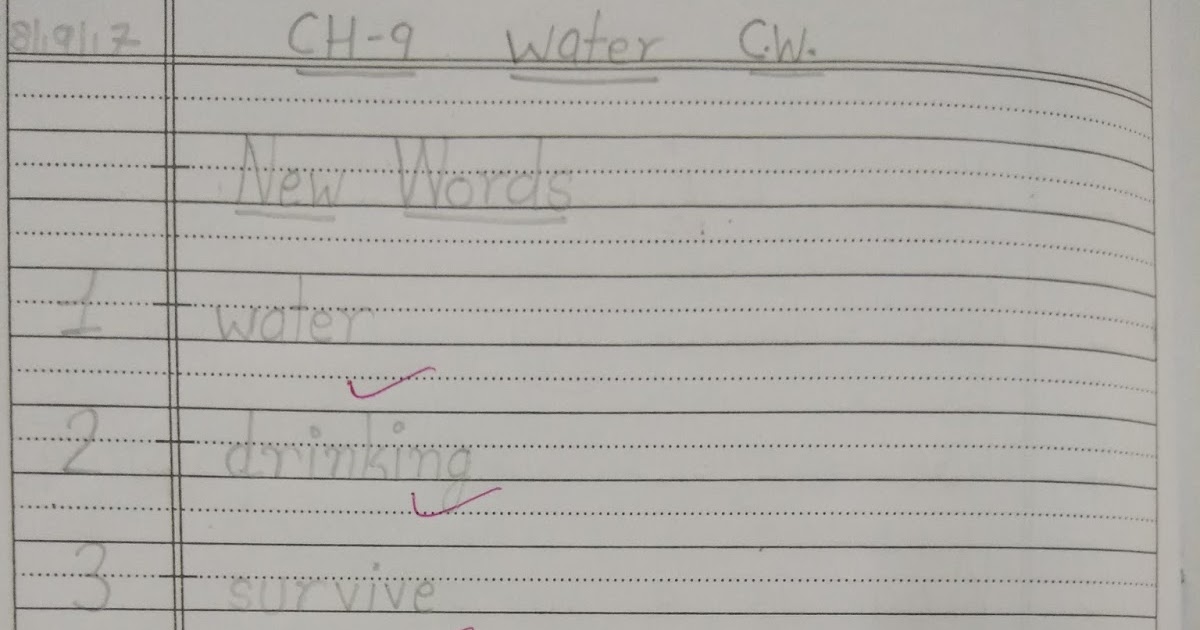 8|9|17 CH-9 Water C.W.
New Words
1 water
2 drinking
3 survive